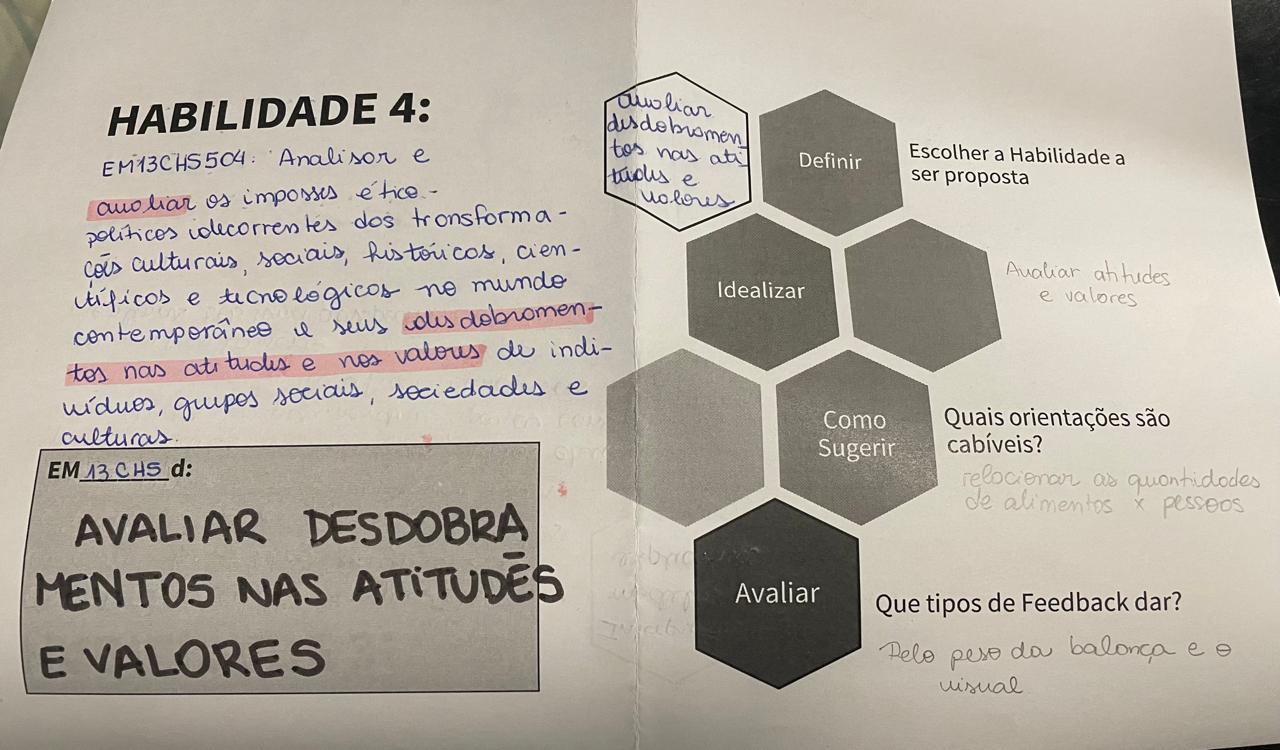 HABILIDADE 4:
EM13CHS504: Analisar e
avaliar os impasses ético-
políticos decorrentes das transforma-
ções culturais, sociais, históricos, cien-
tíficos e tecnológicos no mundo
contemporâneo e seus desdobramen-
tos nas atitudes e nos valores de indi-
víduos, grupos sociais, sociedades e
culturas.
EM 13 CHS d:
AVALIAR DESDOBRA
MENTOS NAS ATITUDES
E VALORES
avaliar
desdobramen
tos nas ati
tudes e
valores
Definir
Escolher a Habilidade a
ser proposta
Idealizar
Avaliar atitudes
e valores
Como
Sugerir
Quais orientações são
cabíveis?
relacionar as quantidades
de alimentos x pessoas
Avaliar
Que tipos de Feedback dar?
Pelo peso da balança e o
visual